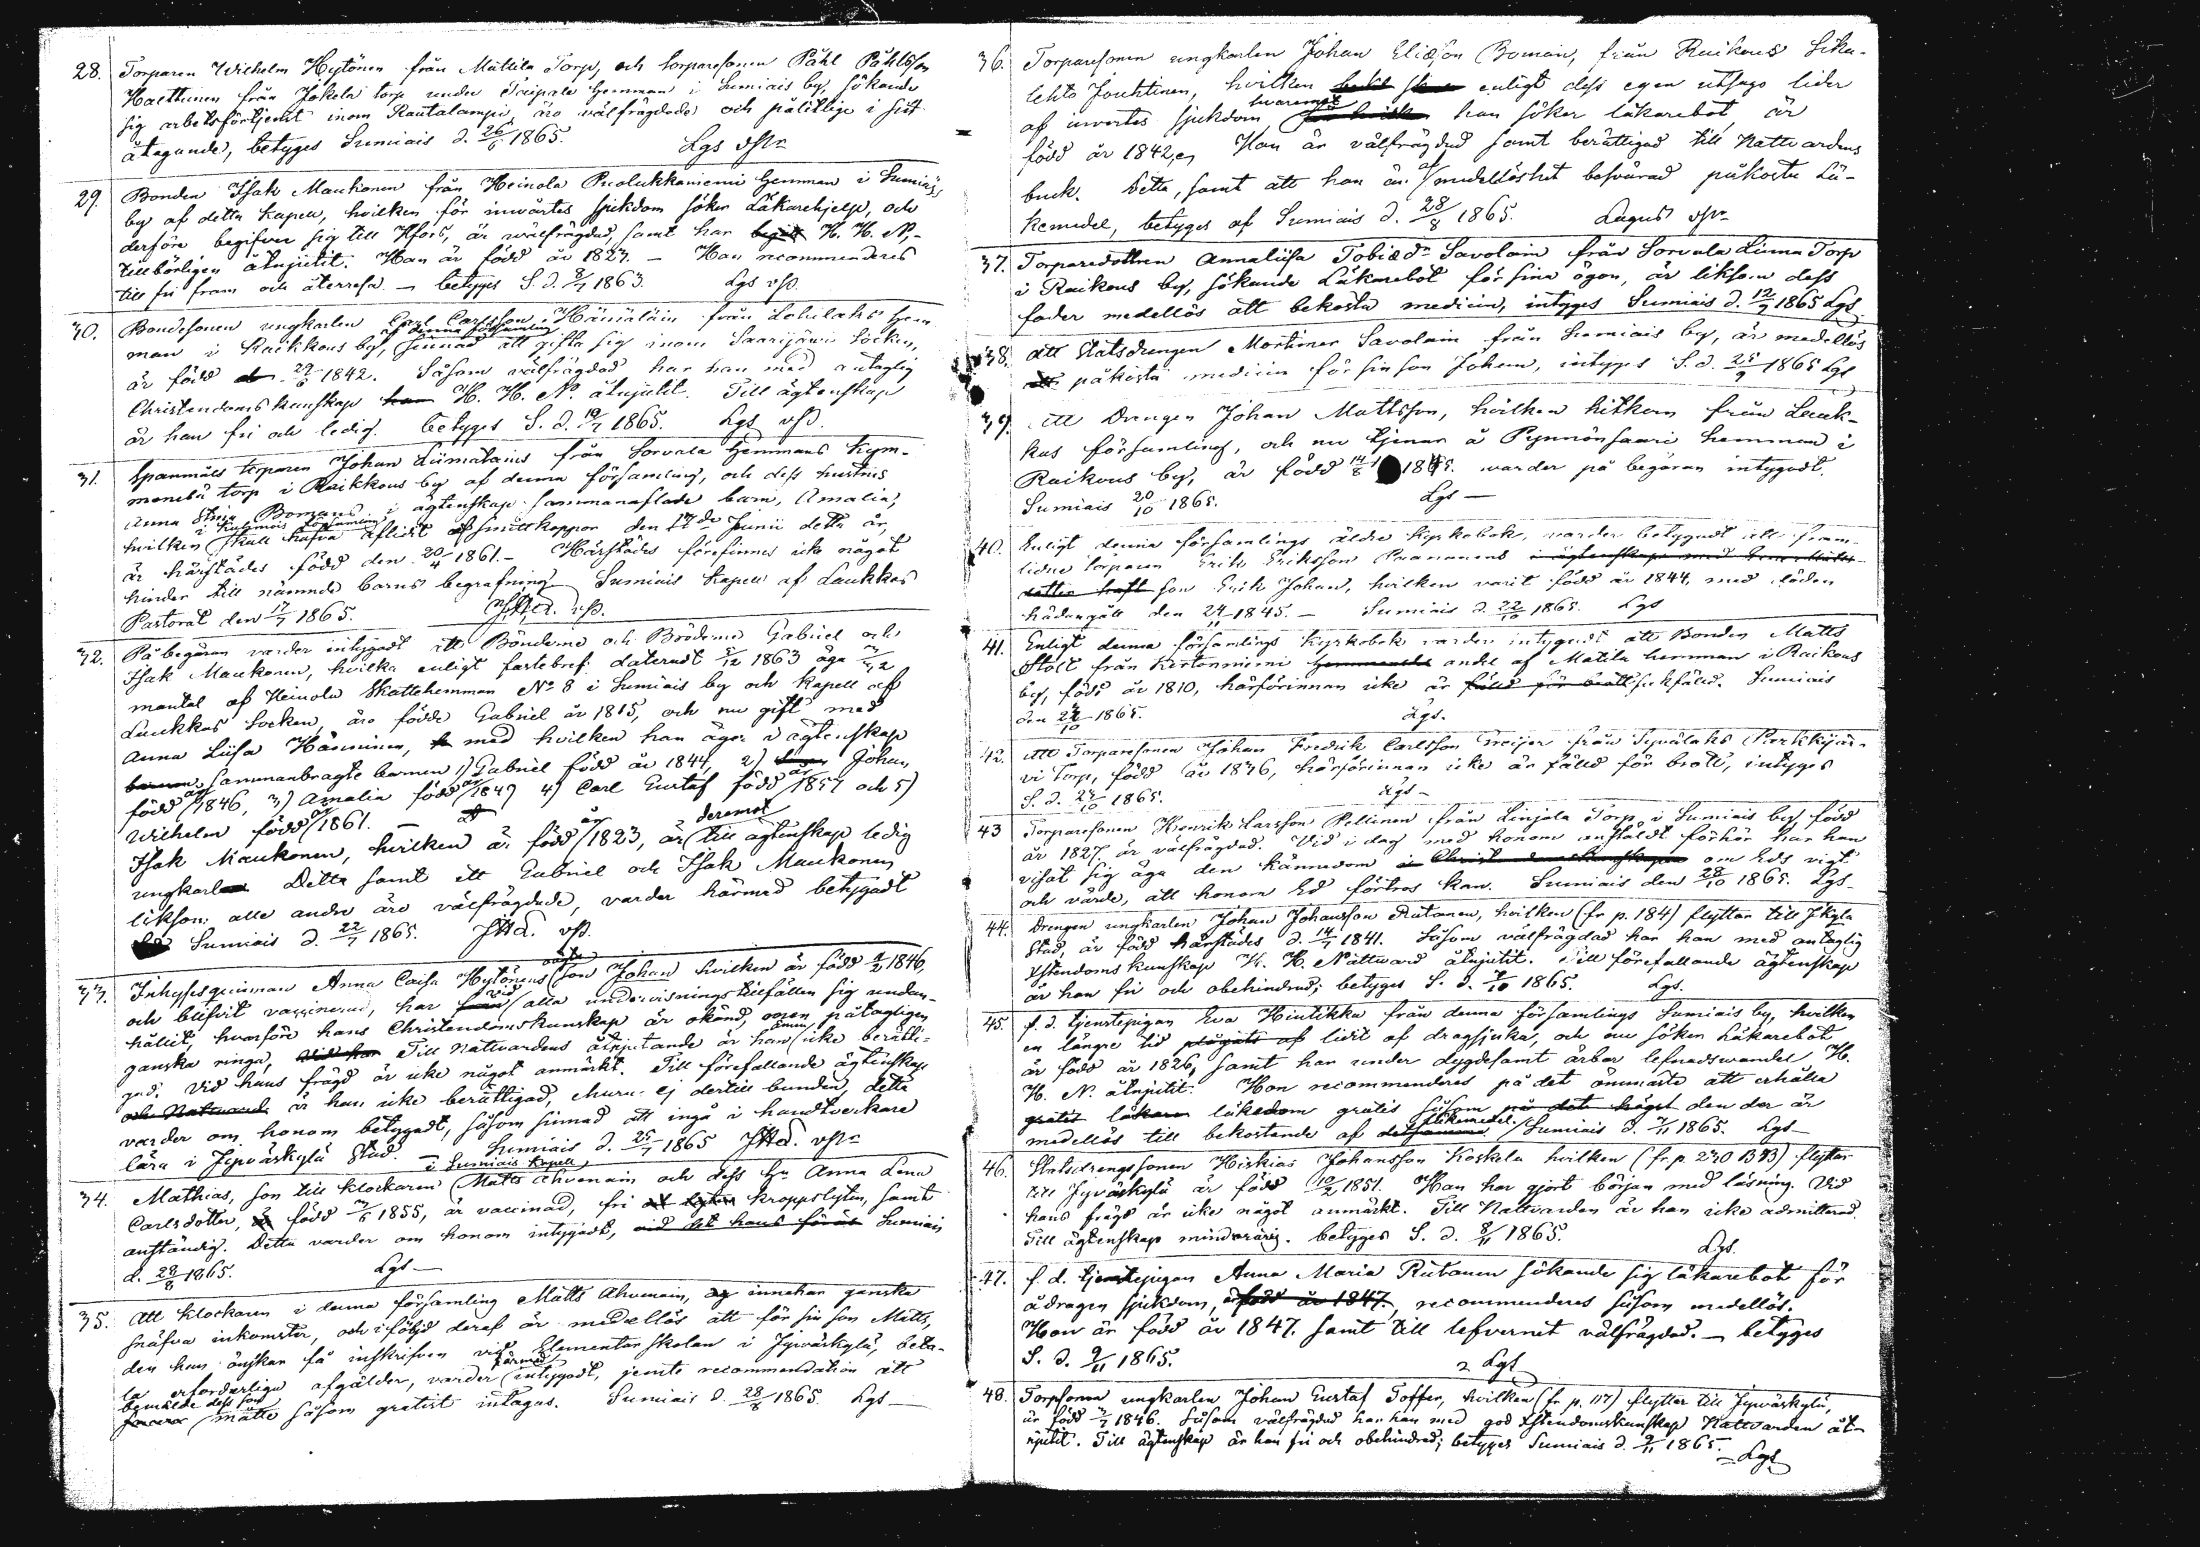 28. Torparen Wilhelm Hytönen från Mattila Torp, och torparesonen Påhl Påhlsson
Haettunen från Jokela torp under Taipale Hemman i Sumiais by, sökande
sig arbetsförtjenst inom Rautalampi, äro välfrägdade och pålitlige i sitt
åtagande, betyges Sumiais d. 26/6 1865. Lgs
29. Bonden Isak Maukonen från Heinola Hemman i Sumiais
by af detta Kapell, hvilken för invärtes sjukdom söker Läkarehjelp, och
derföre begifver sig till Hfors, är wälfrägdad, samt har H. H. N,
tillbörligen åtnjutit. Han är född år 1823. – Han recommenderes
till fri fram och återresa. – betyges S. d. 1863. Lgs
30. Bondesonen ungkarlen Carl Carlsson Hämäläin från Lohilahti Hem
af denna församling
man i Raikkous by, sinnad att gifta sig inom Saarijärvi Socken,
är född 1842. Såsom välfrägdad har han med antaglig
Christendoms kunskap H. H. N. åtnjutit. Till ägtenskap
är han fri och ledig. betyges S. d. 19/7 1865. Lgs
31. Spanmåls torparen Johan Liimatainis från Sorvala Hemmans Kym-
menebä torp i Raikkous by af denna församling, och dess hustrus
Anna Stina Bomans i ägtenskap sammanaflade barn, Amalia,
i församling
hvilken skall hafva aflidit af smittkoppor den Junii detta år,
är härstädes född den 20/4 1861. – Härstädes förefinnes icke något
hinder till nämnde barns begrafning Sumiais Kapell af Laukkas
Pastorat den 17/7 1865.
32. På begäran varder intygadt att Bönderne och Bröderne Gabriel och
Isak Maukonen, hvilka enligt fastebref dateradt 1863 äga
mantal af Heinola Skattehemman No 8 i Sumiais by och Kapell af
Laukkas Socken, äro födde Gabriel år 1815, och nu gift med
Anna Liisa Hänninen, med hvilken han äger i ägtenskap
sammanbragte barnen 1) Gabriel född år 1844, 2) Johan
född år 1846, 3) Amalia född år 1849 4) Carl Gustaf född år 1857 och 5)
Wilhelm född år 1861. –
Isak Maukonen, hvilken är född år 1823, är deremot till ägtenskap ledig
ungkarl Detta samt att Gabriel och Isak Maukonen
liksom alla andre äro välfrägdade, varder härmed betygadt
Sumiais d. 22/7 1865.
33. Inhysesquinnan Anna Caisa Hytönens son Johan hvilken är född 1846,
och blifvit vaccinerad, har vid alla undervisningstillfällen sig undan-
hållit, hvarföre hans Christendomskunskap är okänd, men påtagligen
ganska ringa, Till Nattvardens åtnjutande är han ännu icke berätti-
gad. Vid hans frägd är icke något anmärkt. Till förefallande ägtenskap
är han icke berättigad, ehuru ej dertill bunden, detta
varder om honom betygadt, såsom sinnad att ingå i handtverkare
lära i Jyväskylä Stad. – Sumiais d. 25/7 1865
34. Mathias, son till klockaren i Sumiais Kapell Matts Ahvenain och dess hu Anna Lena
Carlsdotter, född 1855, är vaccinad, fri kroppslyten, samt
anständig. Detta varder om honom intygadt, Sumiais
d. 28/8 1865. Lgs –
35. Att klockaren i denna församling Matts Ahvenain, innehar ganska
snäfva inkomster, och i följd deraf är medellös att för sin son Matts,
den han önskar få inskrifven vid Elementar skolan i Jyväskylä, beta-
la erforderliga afgälder, varder härmed intygadt, jemte recommendation att
bemälde dess son måtte såsom gratist intagas. Sumiais d. 28/8 1865 Lgs –
36. Torparesonen ungkarlen Johan Eliasson Boman, från Raikous Sika-
lehto Jouhtinen, hvilken enligt dess egen utsago lider
af invertes sjukdom hvaremot han söker läkarebot är
född år 1842, Han är välfrägdad samt berättigad till Nattvardens
bruk. Detta, samt att han är af medellöshet besvärad påkosta Lä-
kemedel, betyges af Sumiais d. 28/8 1865. Lagus
37. Torparedottren Annaliisa Tobiasdr Savolain från Sorvala Liima Torp
i Raikous by, sökande Läkarebot för sina ögon, är liksom dess
fader medellös att bekosta medicin, intyges Sumiais d. 12/9 1865 Lgs
38. att Statsdrengen Mortimer Savolain från Sumiais by, är medellös
påkosta medicin för sin son Johan, intyges S. d. 25/9 1865 Lgs
39. att Drengen Johan Mattsson, hvilken hitkom från Lauk-
kas församling, och nu tjenar å Pynnönsaari hemman i
Raikous by, är född varder på begäran intygadt.
Sumiais 20/10 1865. Lgs –
40. Enligt denna församlings äldre kyrkobok, varder betygadt att fram-
lidne torparen Erik Eriksson Paananens i ägtenskap med
dotter haft son Erik Johan, hvilken varit född år 1844, med döden
hädangått den 24/11 1845. – Sumiais d. 22/10 1865. Lgs
41. Enligt denna församlings kyrkobok varder intygadt att Bonden Matts
Stolt från Kertonniemi andel af Matila hemman i Raikous
by, född år 1810, härförinnan icke är sakfäld. Sumiais
den 24/10 1865. Lgs.
42. att Torparesonen Johan Fredrik Carlsson Greijer från Syvälahti Purkkijär-
vi Torp, född år 1836, härförinnan icke är fälld för brott, intyges
S. d. 24/10 1865. Lgs –
43 Torparesonen Henrik Larsson Pellinen från Linjala Torp i Sumiais by född
år 1827 är välfrägdad. Vid i dag med honom anstäldt förhör har han
visat sig äga den kännedom om Eds vigt
och värde, att honom Ed förtros kan. Sumiais den 28/10 1865. Lgs –
44. Drengen ungkarlen Johan Johansson Rutanen, hvilken (fr p. 184) flyttar till Jkylä
Stad, är född härstädes d. 14/7 1841. Såsom välfrägdad har han med antaglig
Xstendoms kunskap H. H. Nattvard åtnjutit. Till förefallande ägtenskap
är han fri och obehindrad; betyges S. d. 1865. Lgs.
45. f. d. tjenstepigan Eva Hintikka från denna församlings Sumiais by, hvilken
en längre tid lidit af dragsjuka, och nu söker Läkarebot
är född år 1826, samt har under dygdesamt ärbar lefnadswandel H.
H. N. åtnjutit. Hon recommenderes på det ömmaste att erhålla
läkedom gratis såsom den der är
medellös till bekostande af läkemedel. Sumiais d. 7/11 1865. Lgs –
46. Statsdrengssonen Hiskias Johansson Koskela hvilken (fr. p. 230 ) flyttar
till Jyväskylä är född 10/2 1851. Han har gjort början med läsning. Vid
hans frägd är icke något anmärkt. Till Nattvarden är han icke admitterad.
Till ägtenskap minderårig. betyges S. d. 8/11 1865. Lgs.
47. f. d. tjenstepigan Anna Maria Rutanen sökande sig läkarebot för
ådragen sjukdom, är född år 1847, recommenderes såsom medellös.
Hon är född år 1847. samt till lefvernet välfrägdad. – betyges
S. d. 9/11 1865. Lgs
48. Torpsonen ungkarlen Johan Gustaf Toffer, hvilken (fr p. 117) flytter till Jyväskylä,
är född 1846. Såsom välfrägdad har han med god Xstendomskunskap Nattvarden åt-
njutit. Till ägtenskap är han fri och obehindrad; betyges Sumiais d. 9/11 1865. – Lgs